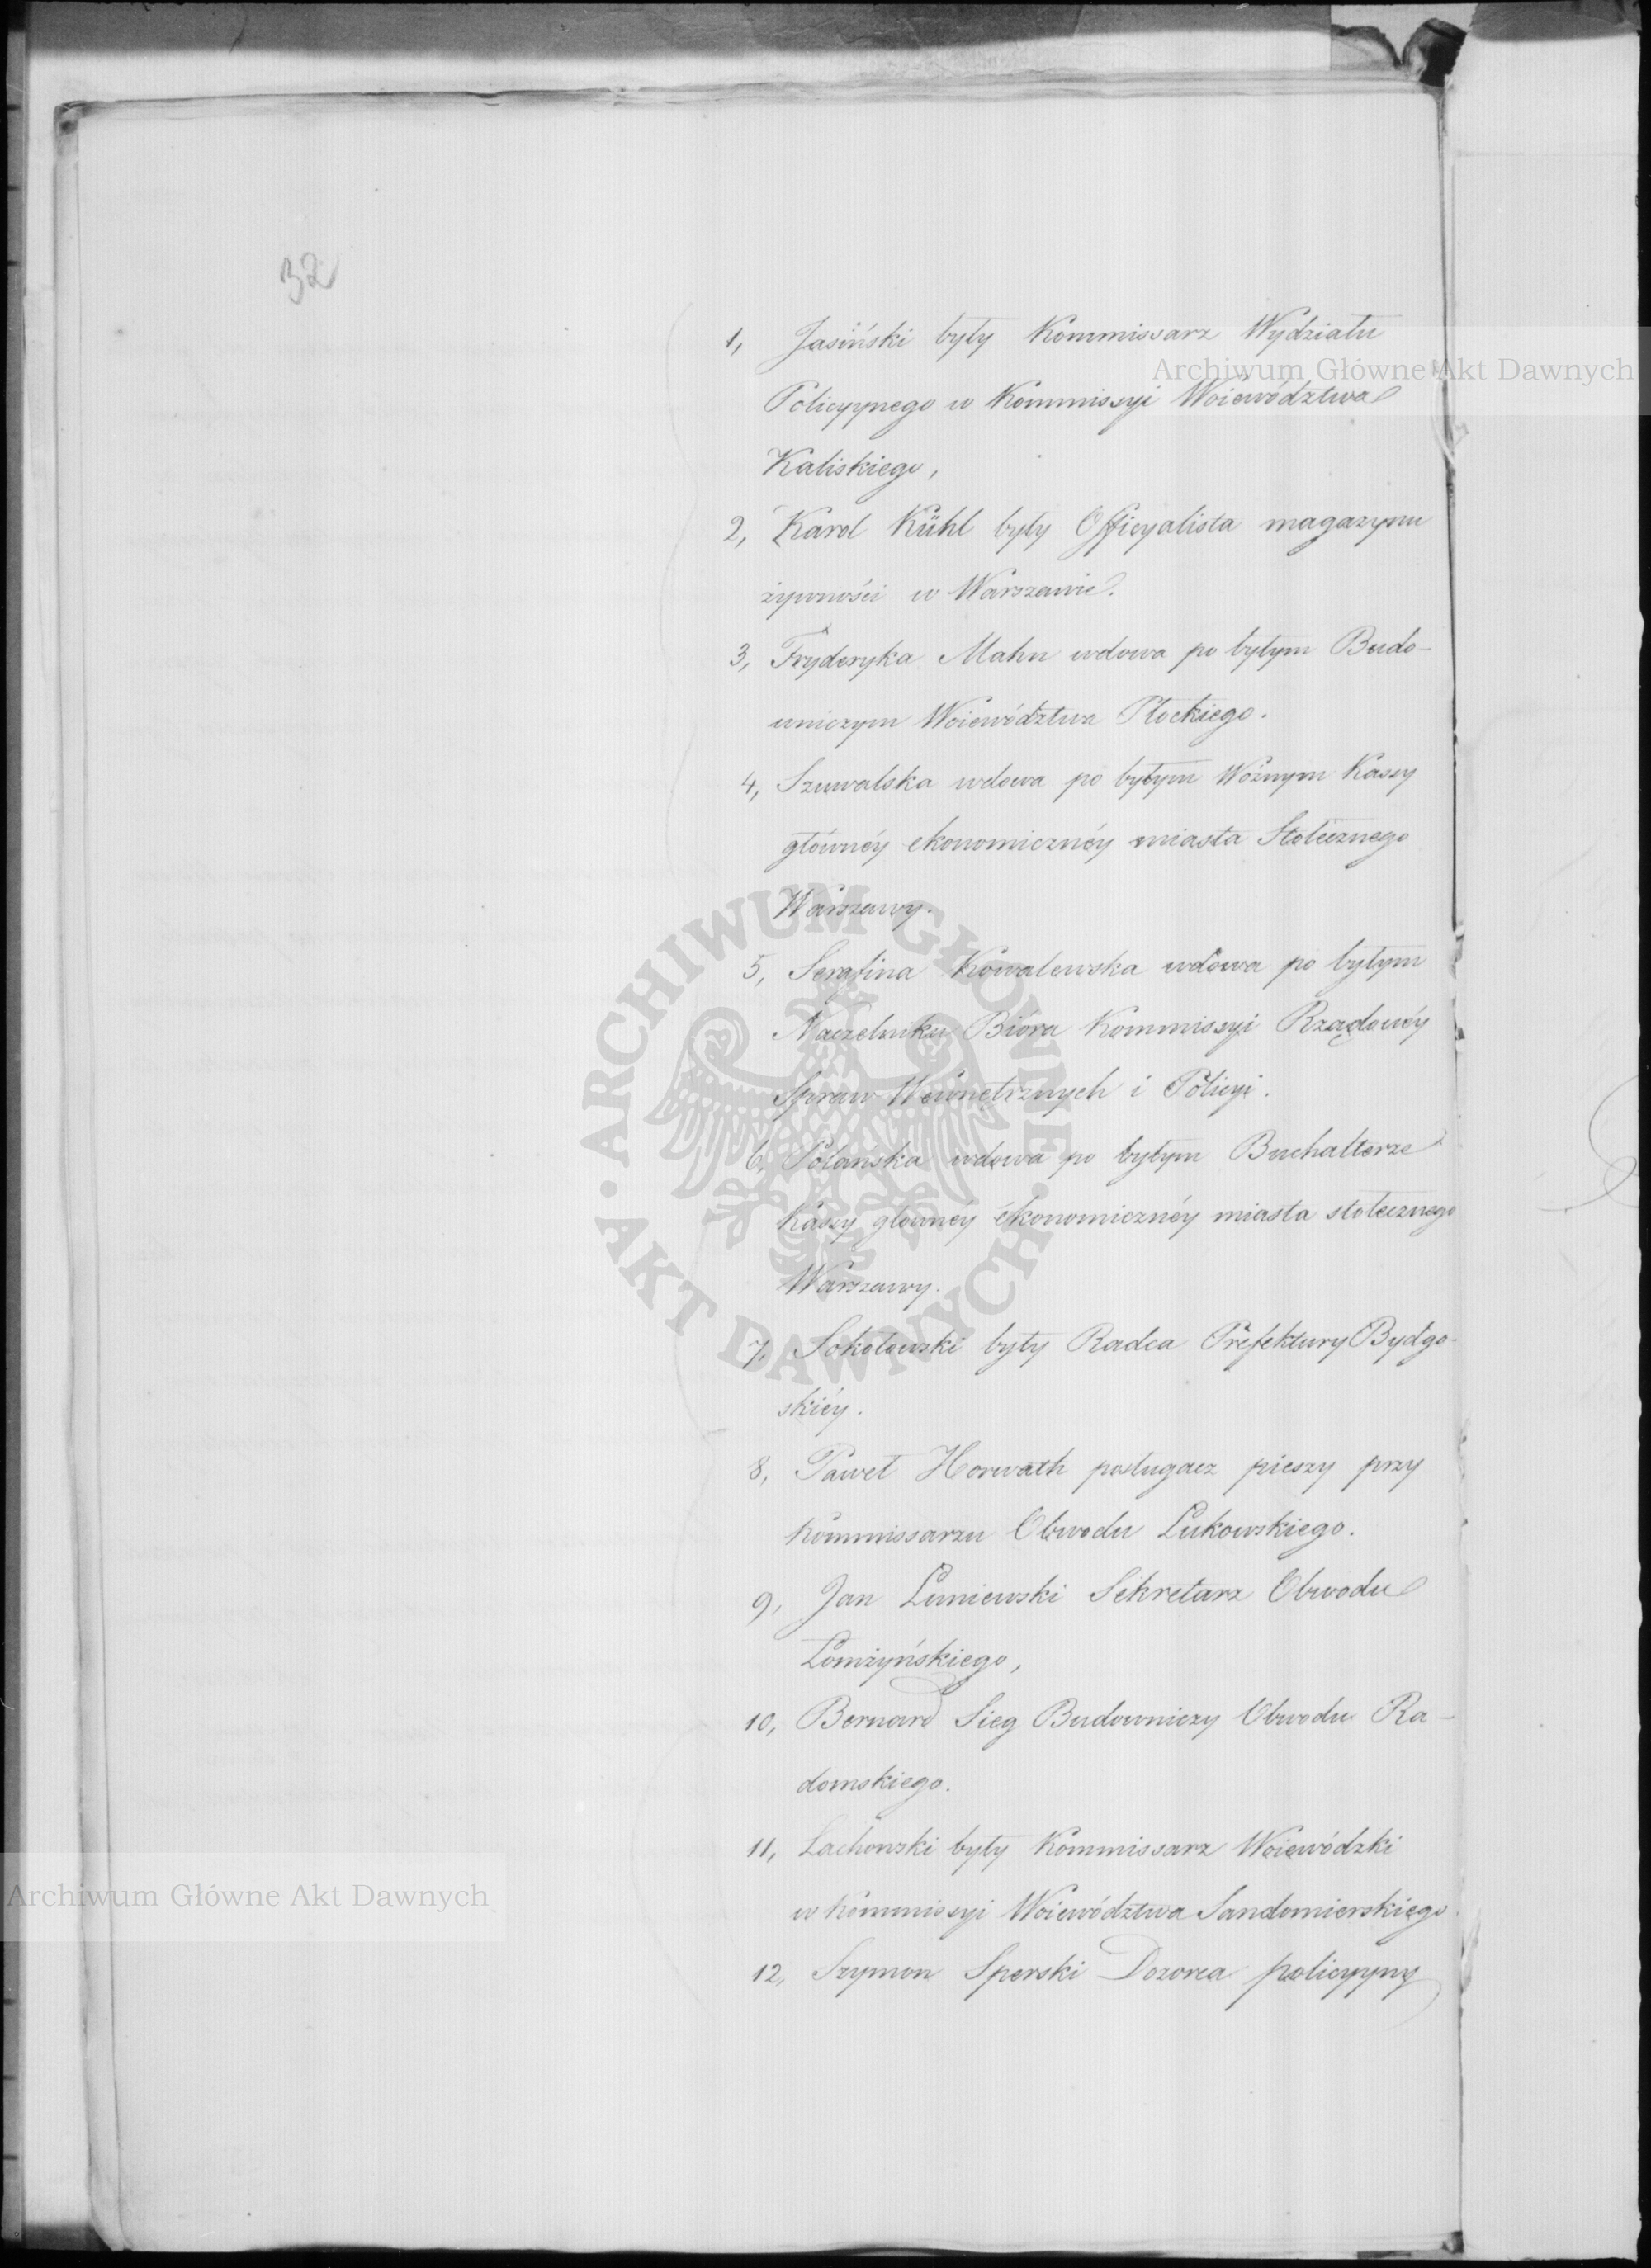 32
1, Jasiński były Kommissarz Wydziału
Policyynego w Kommissyi Woiewództwa
Kaliskiego,
2, Karol Kühl były Officyalista magazynu
żywności w Warszawie.
3, Fryderyka Mahn wdowa po byłym Budo-
wniczym Woiewództwa Płockiego.
4, Szuwalska wdowa po byłym Woźnym Kassy
główney ekonomiczney miasta Stołecznego
Warszawy.
5, Serafina Kowalewska wdowa po byłym
Naczelniku Bióra Kommissyi Rządowéy
Spraw Wewnętrznych i Policyi.
6, Polańska wdowa po byłym Buchalterze
Kassy główney ekonomicznéy miasta stołecznego
Warszawy.
7, Sokołowski były Radca Prefektury Bydgo-
skiéy.
8, Paweł Horwath posługacz pieszy przy
Kommissarzu Obwodu Łukowskiego.
9, Jan Łuniewski Sekretarz Obwodu
Łomżyńskiego,
10, Bernard Sieg Budowniczy Obwodu Ra-
domskiego.
11, Lachowski były Kommissarz Woiewódzki
w Kommissyi Woiewództwa Sandomierskiego
12, Szymon Sperski Dozorca policyyny
Archiwum Główne Akt Dawnych
Archiwum Główne Akt Dawnych
ARCHIWUM GŁÓWNE · AKT DAWNYCH ·